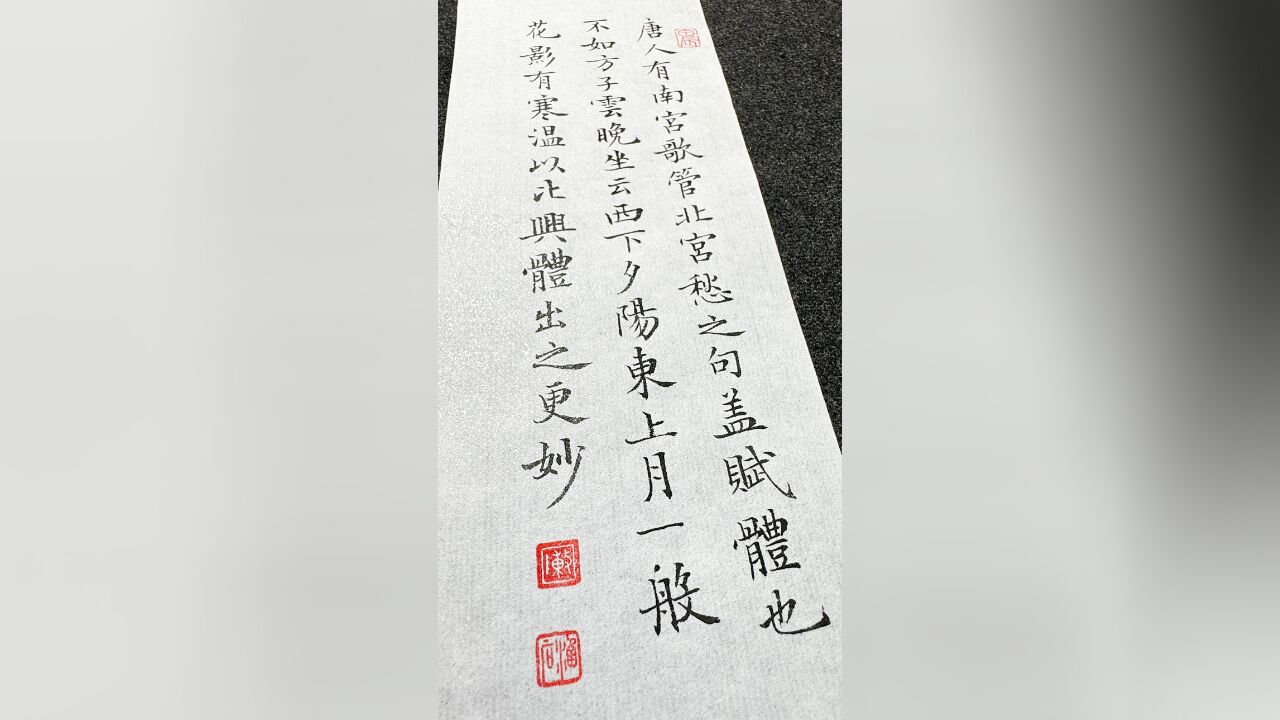 唐人有南宮歌管北宮愁之句盖賦體也
不如方子雲晚坐云西下夕陽東上月一般
花影有寒温以比興體出之更妙